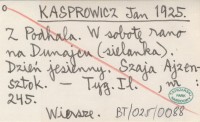 KASPROWICZ Jan 1925.
Z Podhala. W sobotę rano
na Dunajcu (sielanka).
Dzień jesienny. Szaja Ajzen-
sztok. — Tyg. Il. , nr
245.
Wiersze. BT/025/0088